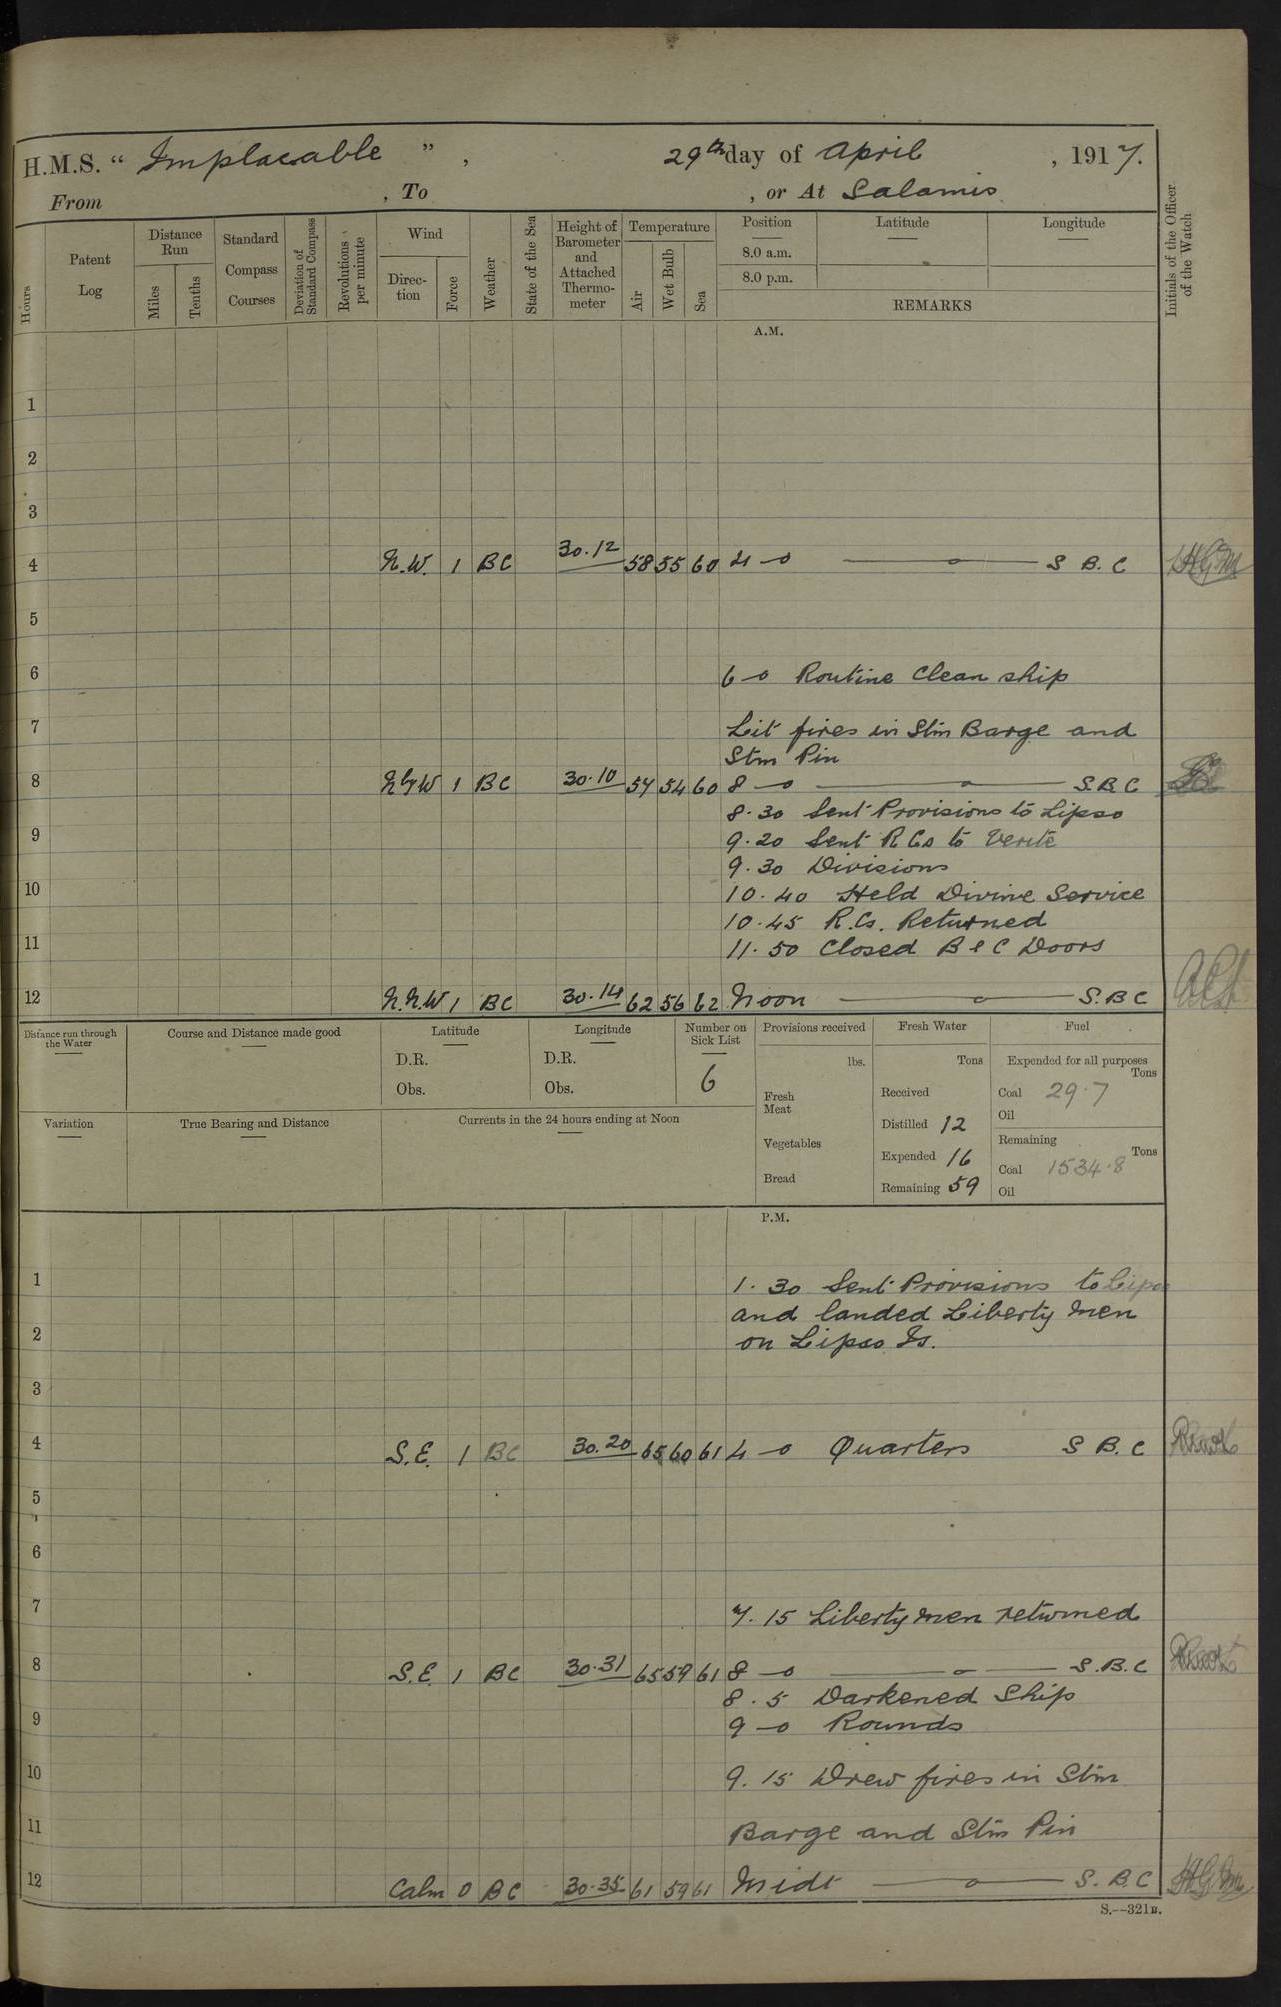 H.M.S. " Implacable ", 29th day of April , 1917.
From , To , or At Salamis
Hours
Patent Log
Distance Run
Miles
Tenths
Standard Compass Courses
Deviation of Standard Compass
Revolutions per minute
Wind
Direc-tion
Force
Weather
State of the Sea
Height of Barometer and Attached Thermo-meter
Temperature
Air
Wet Bulb
Sea
Position
8.0 a.m.
8.0 p.m.
Latitude
Longitude
REMARKS
Initials of the Officer of the Watch
A.M.
1
2
3
4 N.W. 1 BC 30.12 58 55 60 4-0 — o — S B.C
5
6 6-0 Routine Clean ship
7 Lit fires in Stm Barge and
Stm Pin
8 NbyW 1 BC 30.10 57 54 60 8-0 — o — S.B.C
8.30 Sent Provisions to Lipso
9 9.20 Sent R Cs to Verite
9.30 Divisions
10 10.40 Held Divine Service
10.45 R.Cs. Returned
11 11.50 Closed B & C Doors
12 N.N.W 1 BC 30.14 62 56 62 Noon — o — S.B C
Distance run through the Water
Course and Distance made good
Latitude
D.R.
Obs.
Longitude
D.R.
Obs.
Number on Sick List
6
Provisions received
lbs.
Fresh Meat
Vegetables
Bread
Fresh Water
Tons
Received
Distilled 12
Expended 16
Remaining 59
Fuel
Expended for all purposes
Tons
Coal 29.7
Oil
Remaining
Tons
Coal 1534.8
Oil
Variation
True Bearing and Distance
Currents in the 24 hours ending at Noon
P.M.
1 1.30 Sent Provisions to Lipso
and landed Liberty men
2 on Lipso Is.
3
4 S.E. 1 BC 30.20 65 60 61 4-0 Quarters S B.C
5
6
7 7.15 Liberty men returned
8 S.E. 1 BC 30.31 65 59 61 8-0 — o — S.B.C
8.5 Darkened Ship
9 9-0 Rounds
10 9.15 Drew fires in Stm
11 Barge and Stm Pin
12 Calm 0 BC 30.35 61 59 61 Midt — o — S.B C
S.—321B.